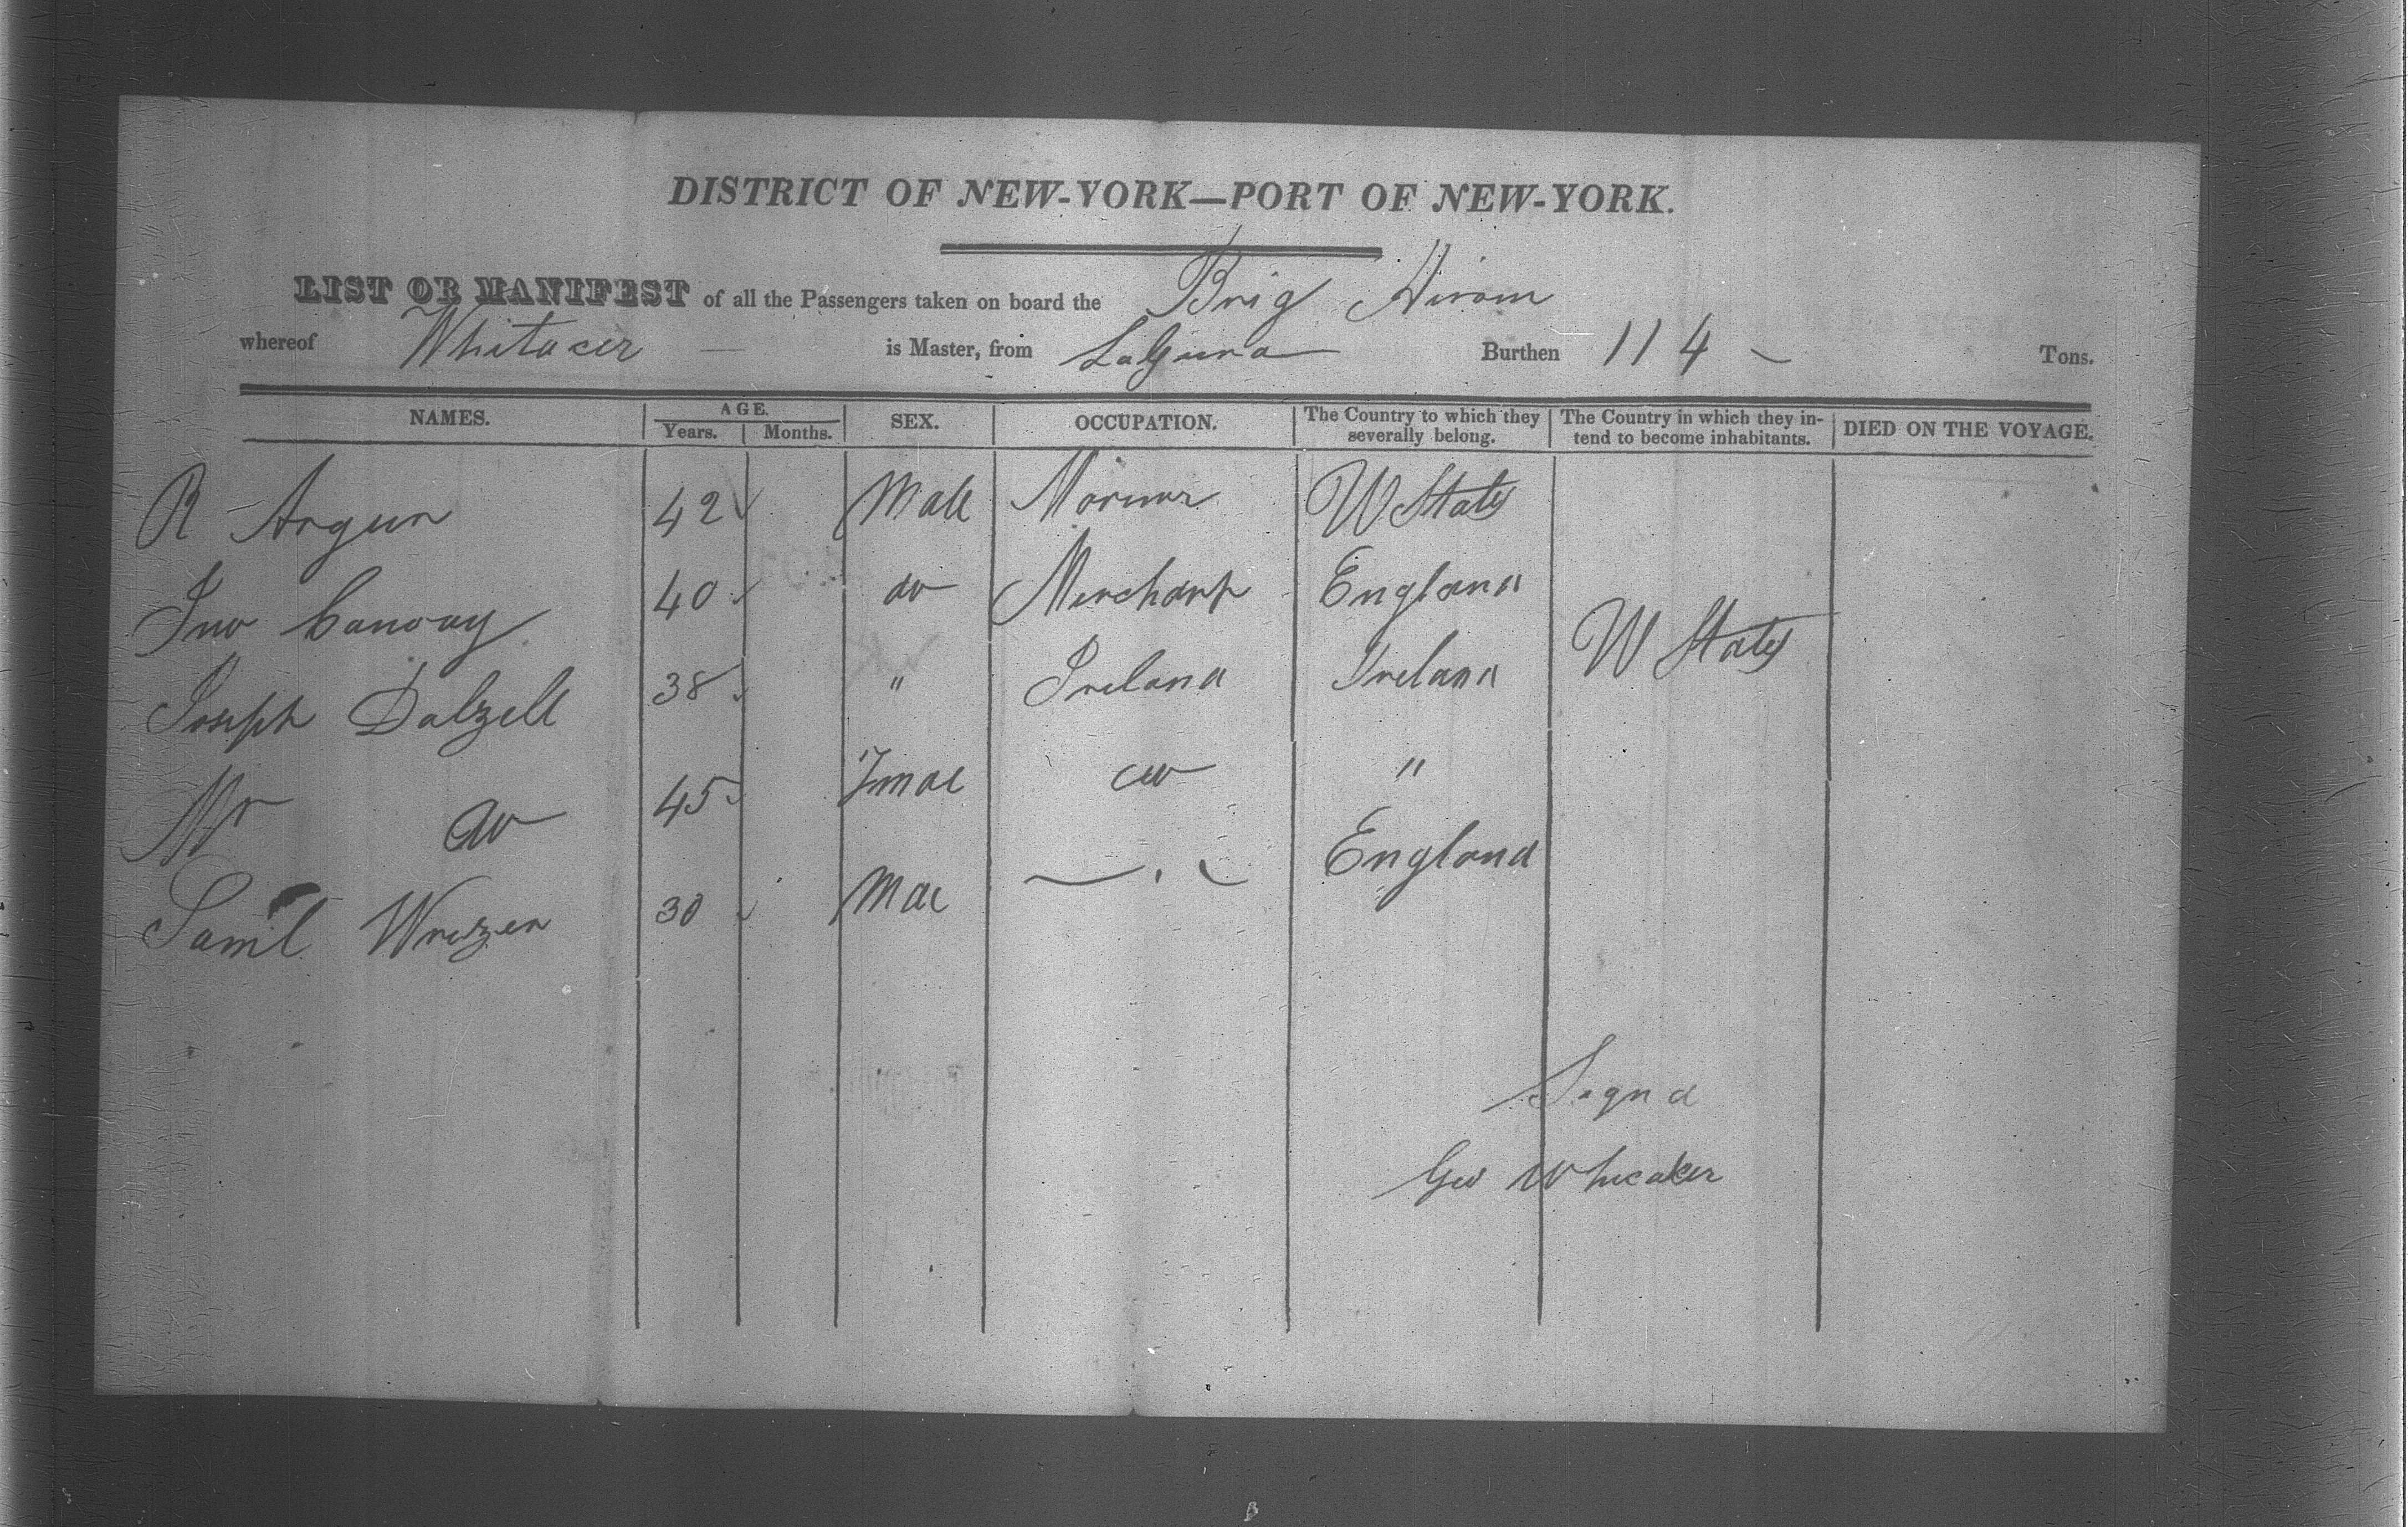 DISTRICT OF NEW-YORK—PORT OF NEW-YORK.
LIST OR MANIFEST of all the Passengers taken on board the Brig Hiram
whereof Whitacer is Master, from Laguna Burthen 114 Tons.
NAMES. AGE. Years. Months. SEX. OCCUPATION. The Country to which they severally belong. The Country in which they intend to become inhabitants. DIED ON THE VOYAGE.
R 42 Male Mariner U States
Jno Canway 40 do Merchant England
Joseph Dalzell 38 " Ireland Ireland U States
do 45 do "
Saml 30 England
Signd
Geo Wheaker